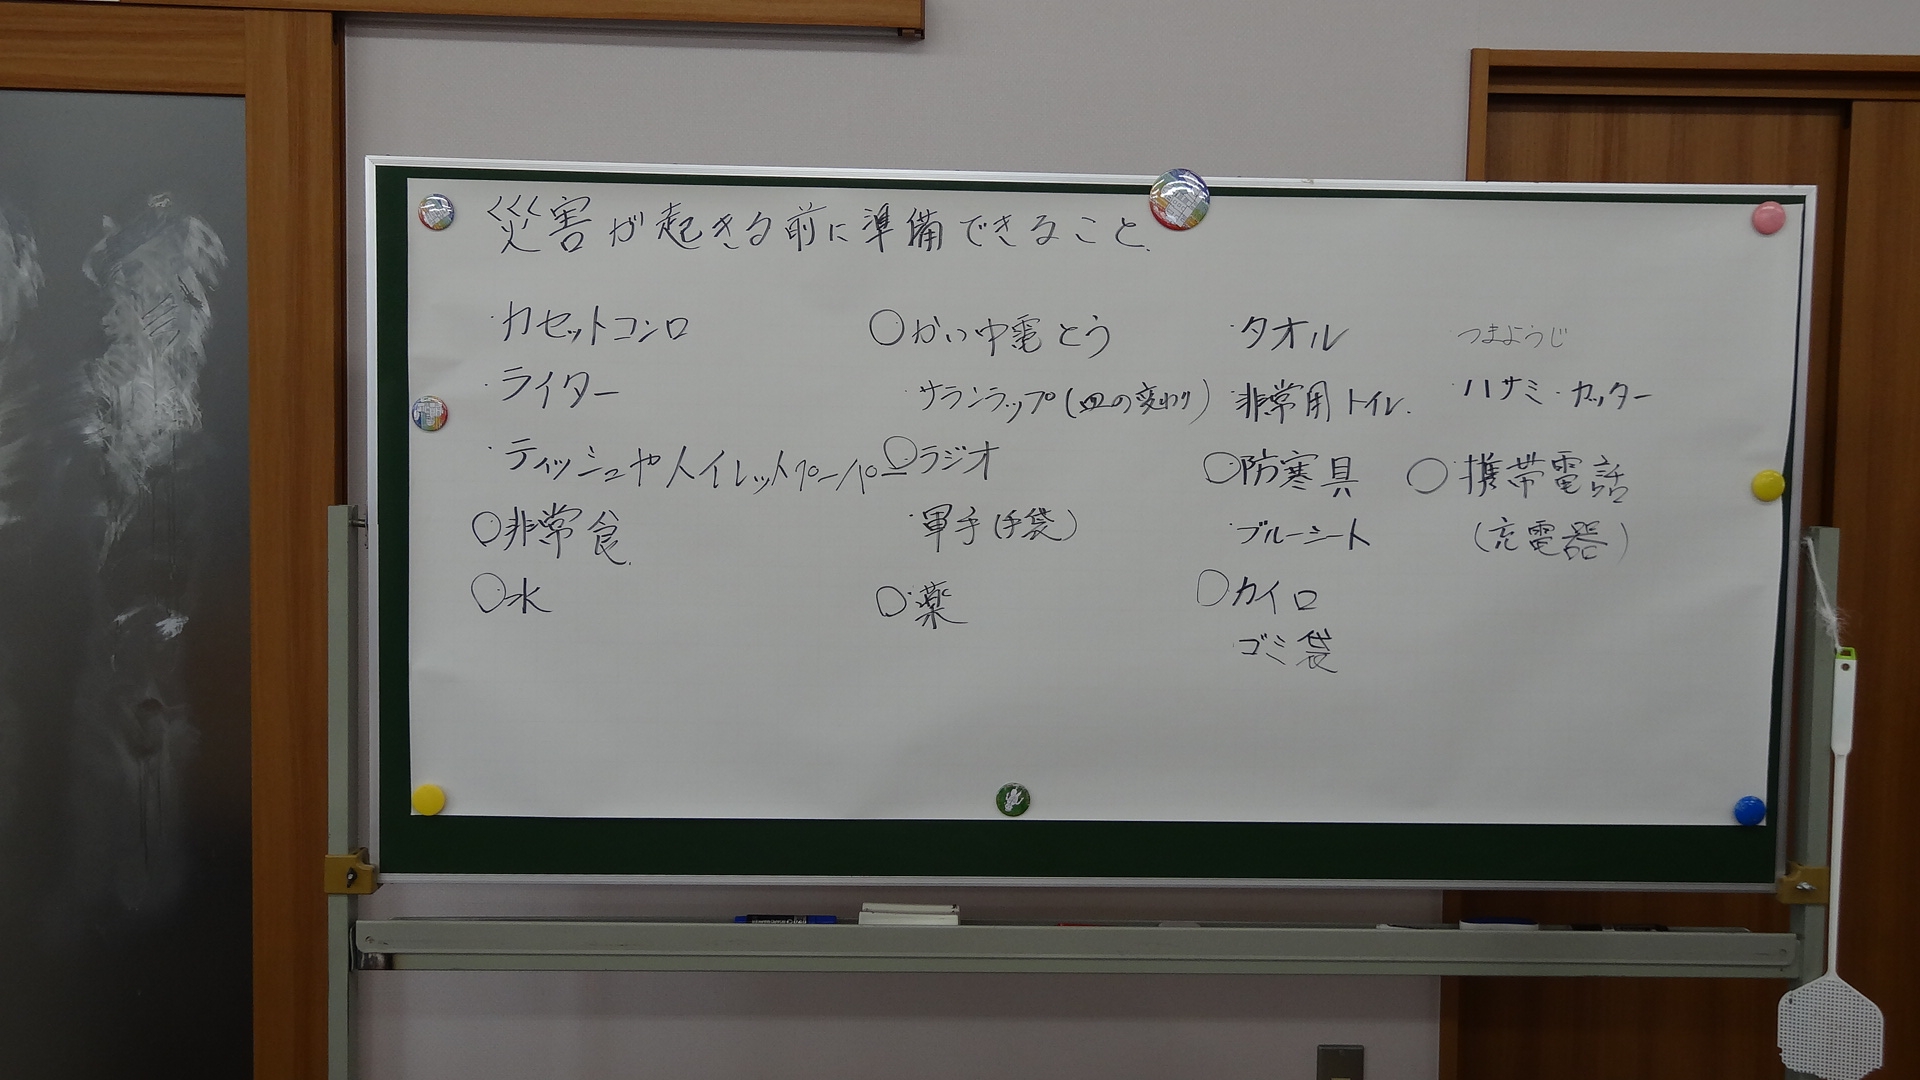 災害が起きる前に準備できること.
・カセットコンロ
・ライター
・ティッシュやトイレットペーパー
○非常食.
○水
○かい中電とう
・サランラップ(皿の変わり)
○ラジオ
・軍手(手袋)
○・薬
・タオル
・非常用トイレ.
○防寒具
・ブルーシート
○カイロ
ゴミ袋
・つまようじ
・ハサミ・カッター
○・携帯電話
(充電器)